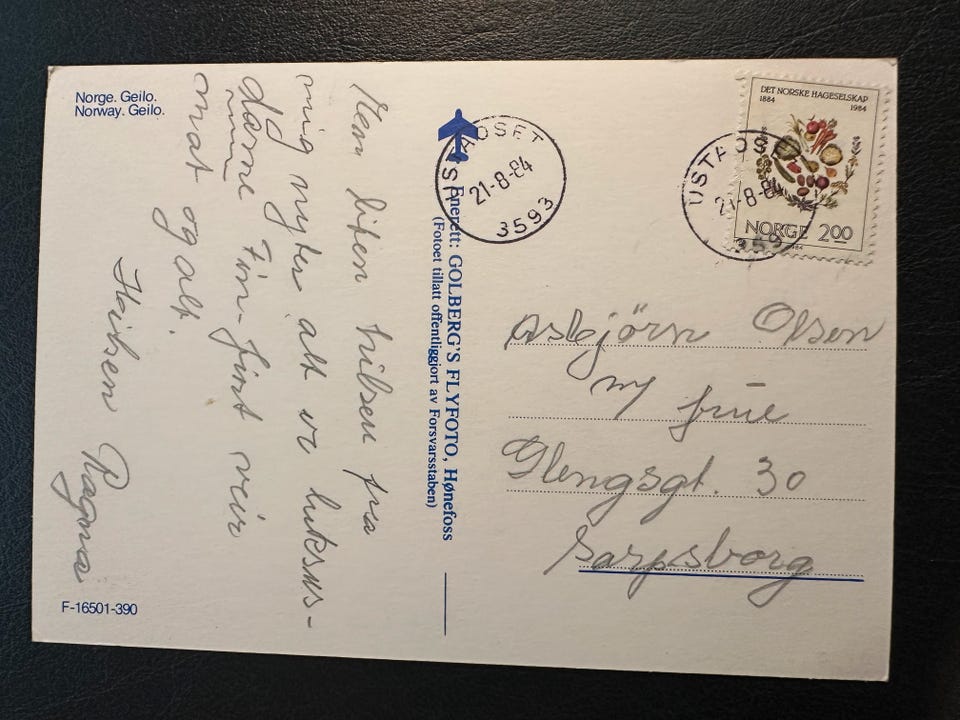 Norge. Geilo.
Norway. Geilo.
Hen liten hilsen fra
mig nyter alt er luksus-
dame Fin-fint veir
mat og alt.
Hilsen Ragna
F-16501-390
Enerett: GOLBERG'S FLYFOTO, Hønefoss
(Fotoet tillatt offentliggjort av Forsvarsstaben)
USTAOSET
21-8-84
3593
USTAOSE
21-8-84
359
DET NORSKE HAGESELSKAP
1884 1984
NORGE 200
1984
Asbjörn Olsen
m/ frue
Glengsgt. 30
Sarpsborg